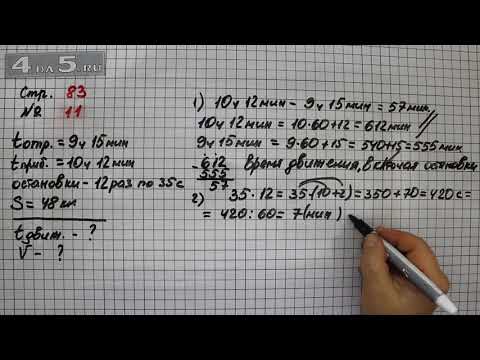 4 на 5.RU
Стр. 83
№ 11
t отр. = 9 ч 15 мин
t приб. = 10 ч 12 мин
остановки - 12 раз по 35 с
S = 48 км
t движ. - ?
V - ?
1) 10 ч 12 мин - 9 ч 15 мин = 57 мин
10 ч 12 мин = 10·60+12 = 612 мин
9 ч 15 мин = 9·60+15 = 540+15=555 мин
- 612 Время движения, включая остановки
555
57
2) 35·12 = 35·(10+2)=350+70=420 с=
= 420:60= 7(мин)